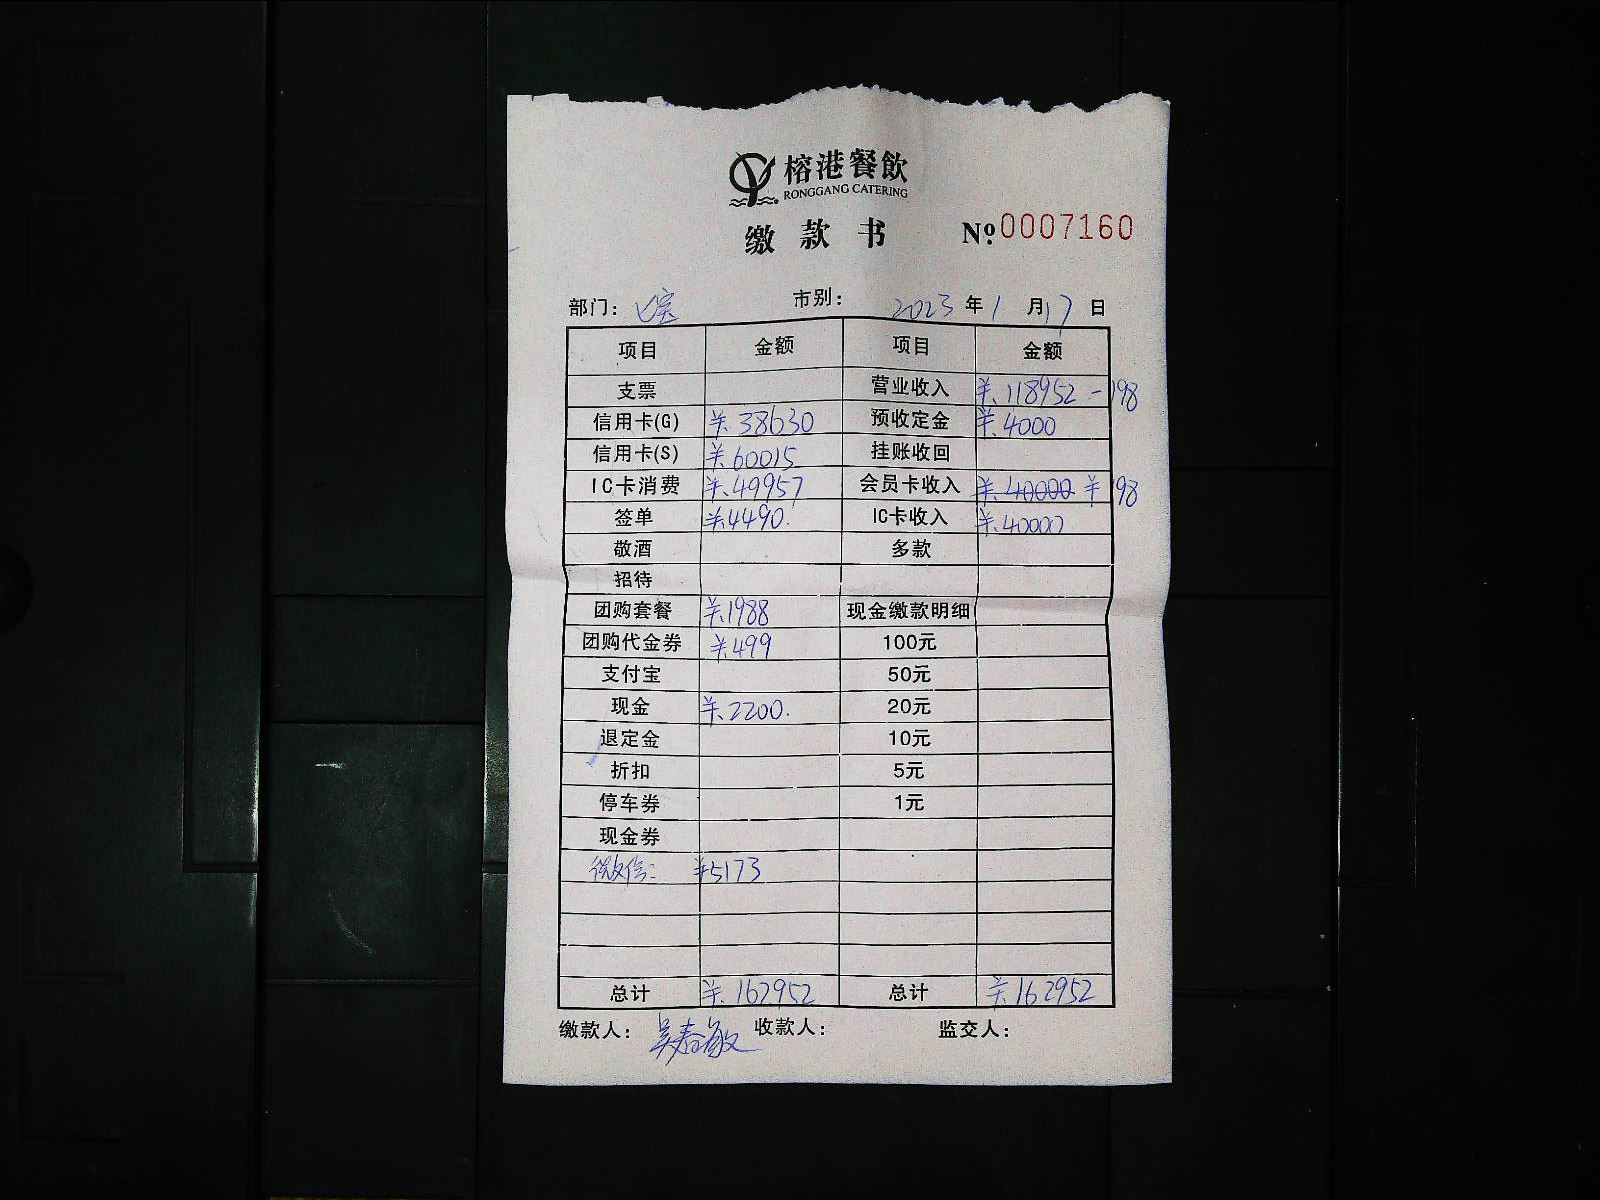 榕港餐飲
RONGGANG CATERING
缴款书 №0007160
部门： 市别： 2023年1月17日
项目 金额 项目 金额
支票 营业收入 ¥.118952-198
信用卡(G) ¥.38630 预收定金 ¥.4000
信用卡(S) ¥.60015 挂账收回
IC卡消费 ¥.49957 会员卡收入 ¥.40000 ¥198
签单 ¥.4490. IC卡收入 ¥.40000
敬酒 多款
招待
团购套餐 ¥.1988 现金缴款明细
团购代金券 ¥.499 100元
支付宝 50元
现金 ¥.2200. 20元
退定金 10元
折扣 5元
停车券 1元
现金券
微信： ¥5173
总计 ¥.162952 总计 ¥.162952
缴款人：吴春敏 收款人： 监交人：